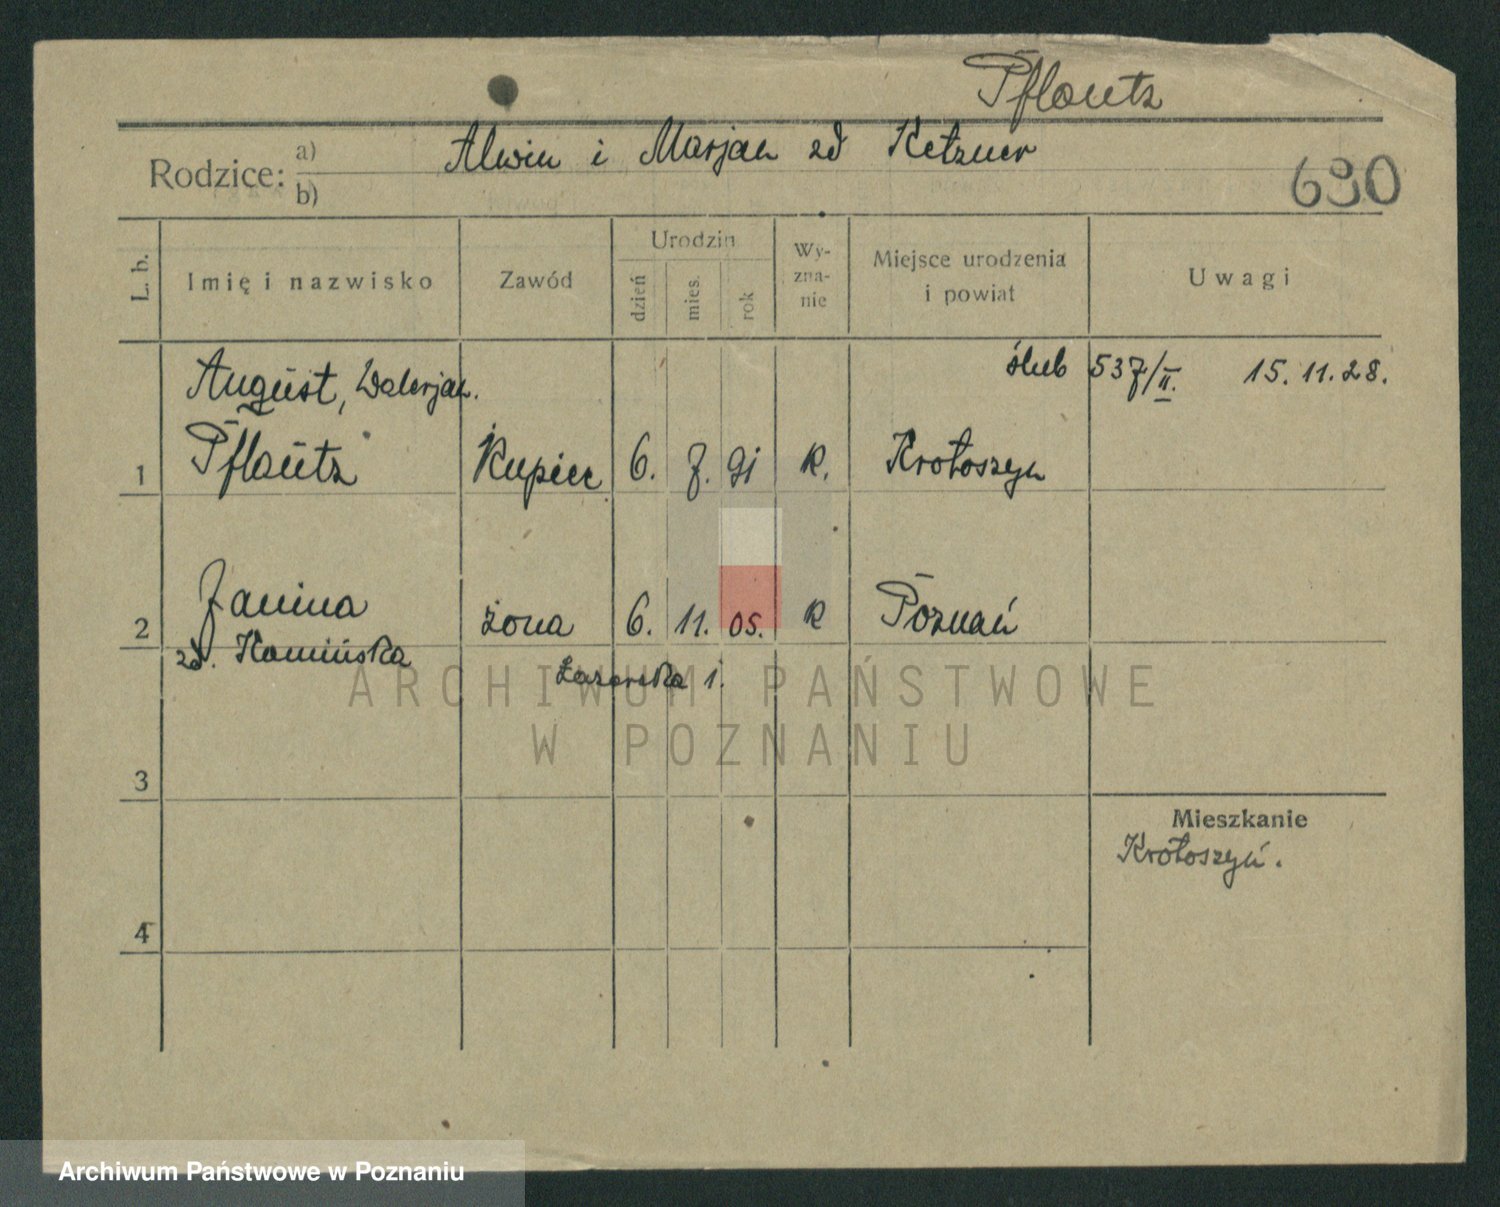 Pflautz
Rodzice: a) b)
Alwin i Marjan zd Ketzner
630
L. b.
Imię i nazwisko
Zawód
Urodzin
dzień
mies.
rok
Wy-
zna-
nie
Miejsce urodzenia
i powiat
Uwagi
August, Walerjan.
ślub 537/II. 15. 11. 28.
1 Pflaütz Kupiec 6. 7. 91 k. Krotoszyn
2 Janina żona 6. 11. 05. k Poznań
zd. Kamińska
Łazarska 1.
ARCHIWUM PAŃSTWOWE
W POZNANIU
3
Mieszkanie
Krotoszyń.
4
Archiwum Państwowe w Poznaniu